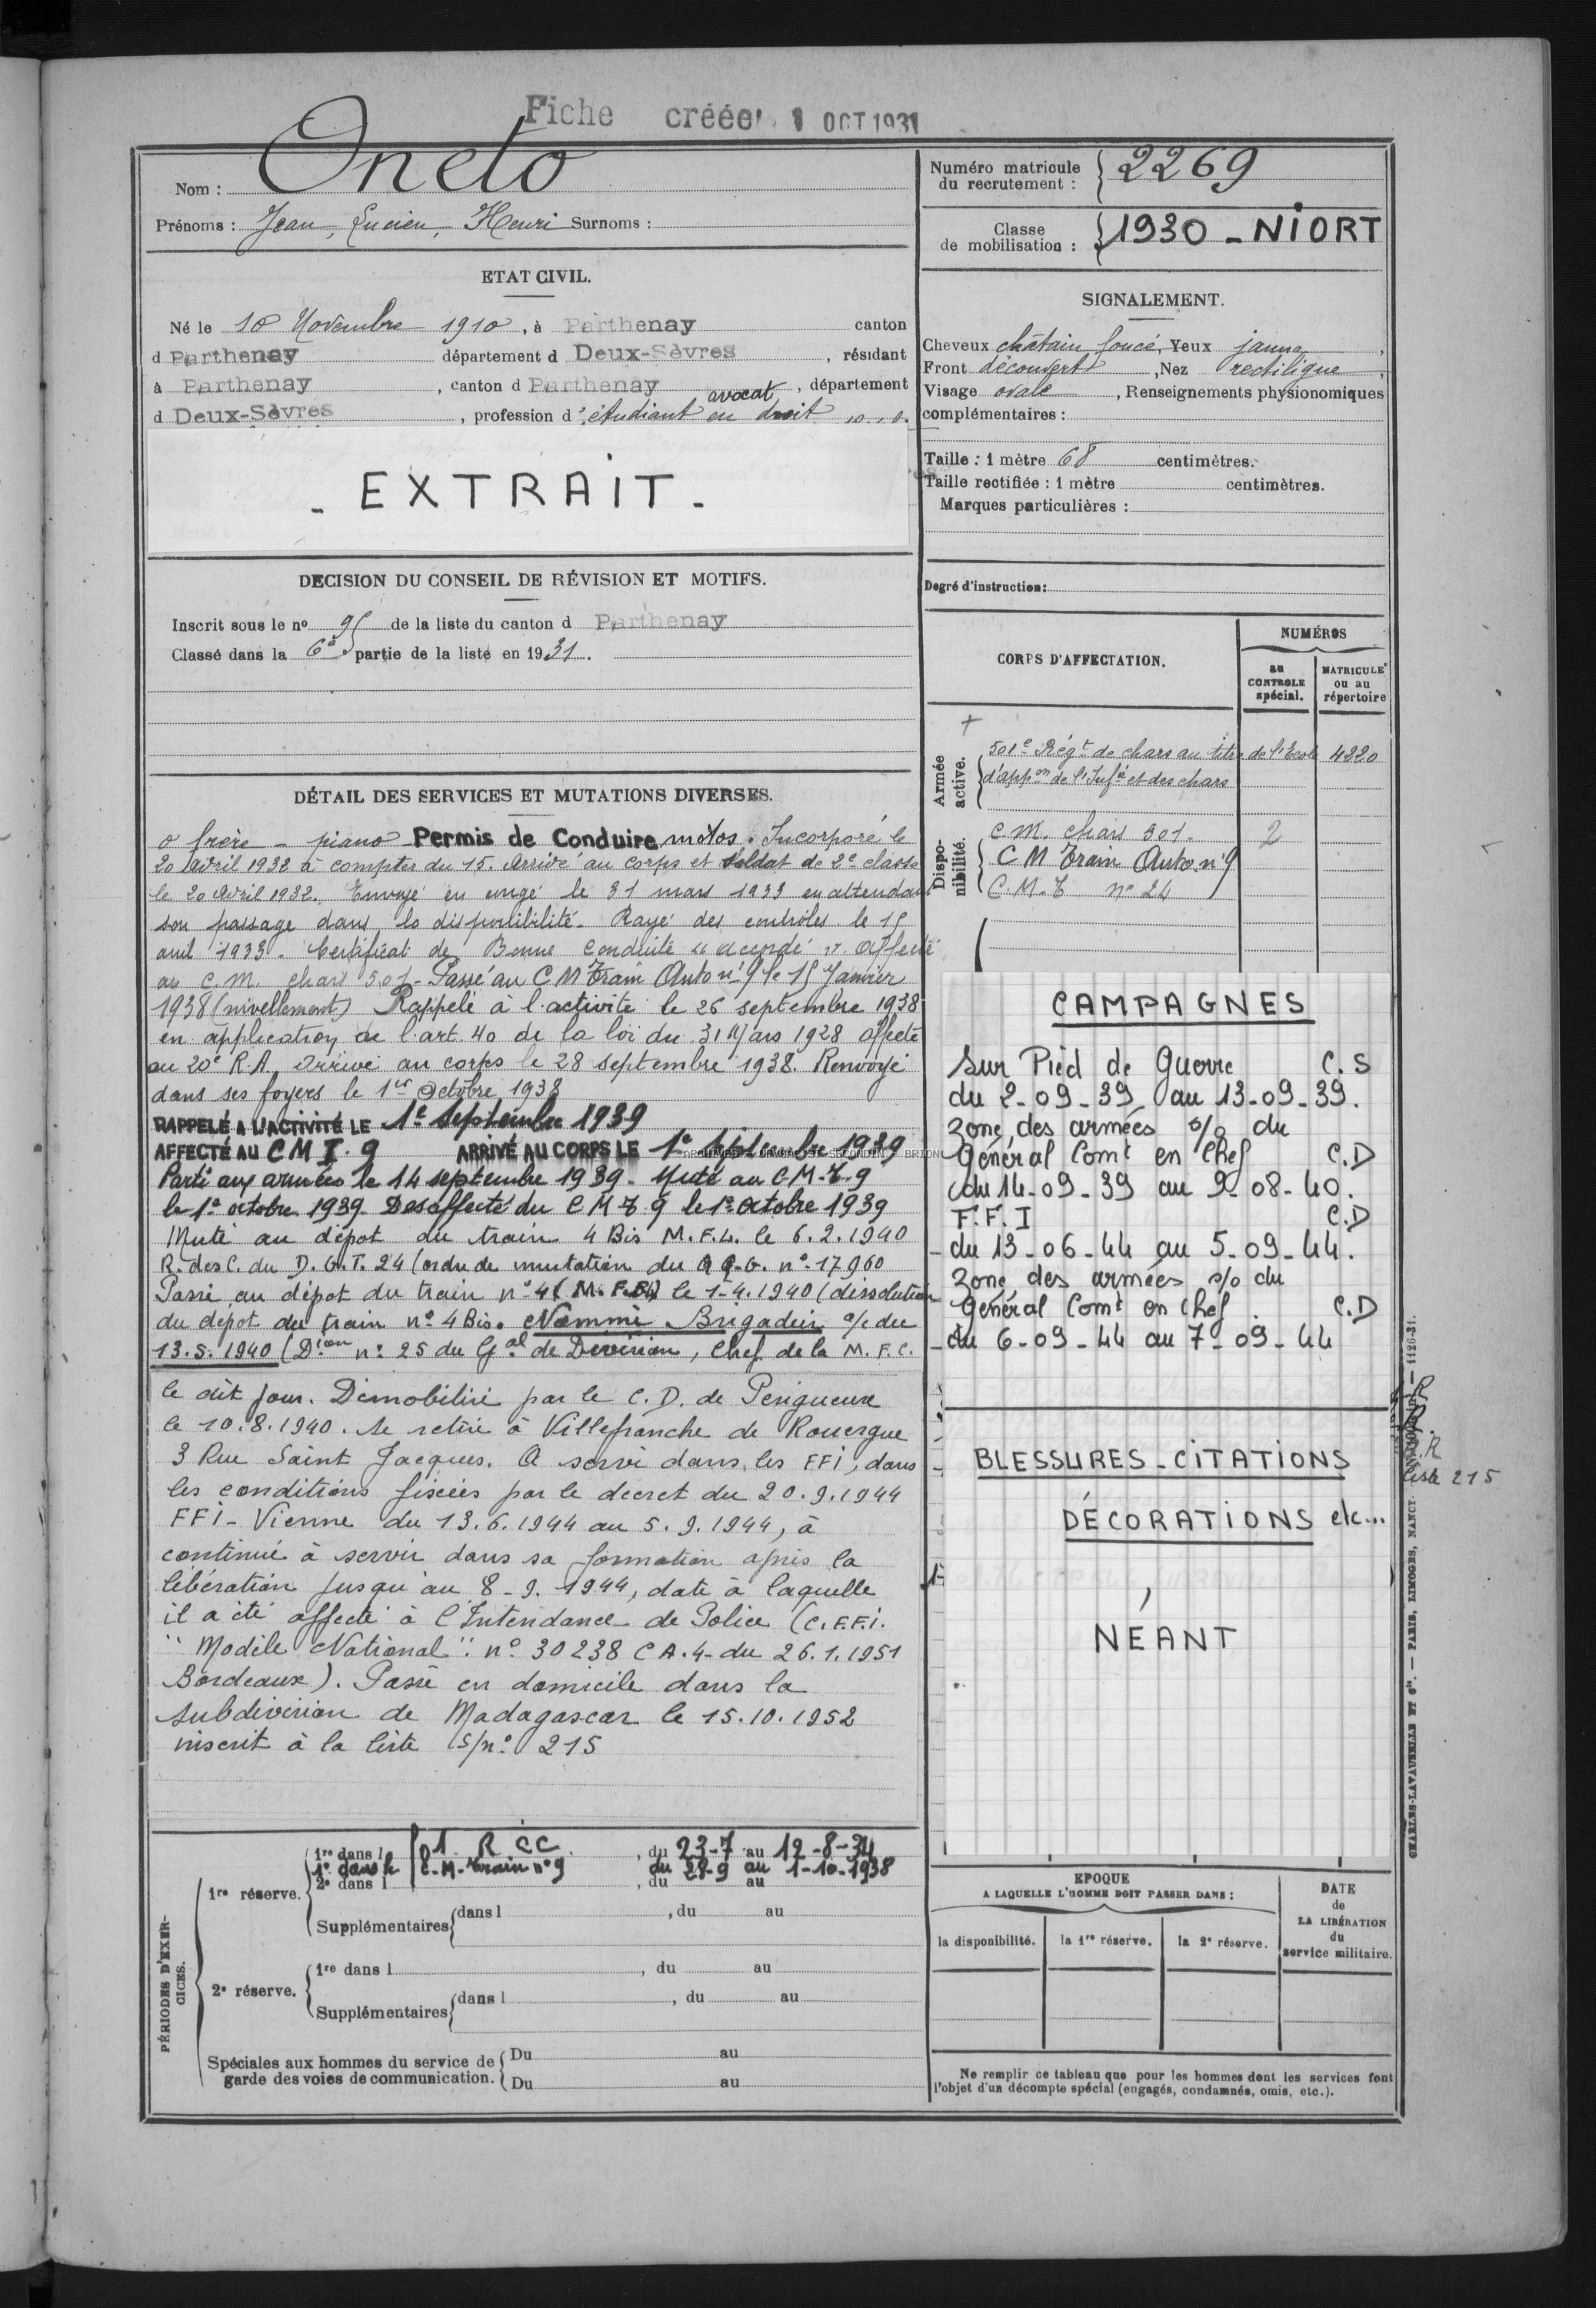 Fiche créée 1 OCT 1931
Nom : Oneto
Prénoms : Jean, Lucien, Henri Surnoms :
ETAT CIVIL.
Né le 10 Novembre 1910, à Parthenay canton
d Parthenay département d Deux-Sèvres, résidant
à Parthenay, canton d Parthenay, département
avocat
d Deux-Sèvres, profession d'étudiant en droit
- EXTRAIT -
DECISION DU CONSEIL DE RÉVISION ET MOTIFS.
Inscrit sous le no 95 de la liste du canton d Parthenay
Classé dans la 6e partie de la liste en 1931.
DÉTAIL DES SERVICES ET MUTATIONS DIVERSES.
o frère - piano Permis de Conduire motos. Incorporé le
20 avril 1932 à compter du 15. Arrivé au corps et soldat de 2e classe
le 20 avril 1932. Envoyé en congé le 31 mars 1933 en attendant
son passage dans la disponibilité. Rayé des contrôles le 15
avril 1933. Certificat de Bonne Conduite "accordé". Affecté
au C.M. chars 501 - Passé au CM Train Auto n°9 le 15 Janvier
1938 (nivellement) Rappelé à l'activité le 26 septembre 1938
en application de l'art. 40 de la loi du 31 Mars 1928 affecté
au 20e R.A. Arrivé au corps le 28 septembre 1938. Renvoyé
dans ses foyers le 1er Octobre 1938
RAPPELÉ A L'ACTIVITÉ LE 1e Septembre 1939
AFFECTÉ AU CM I. 9 ARRIVÉ AU CORPS LE 1e Septembre 1939
Parti aux armées le 14 septembre 1939. Muté au C.M.T. 9
le 1e octobre 1939. Desaffecté du C M T. 9 le 1e octobre 1939
Muté au dépot du train 4 Bis M.F.L. le 6.2.1940
R. des C. du D.G.T. 24 (ordre de mutation du G.Q.G. n° 17960
Passé au dépot du train n° 4 le 1-4.1940 (dissolution
du dépot du train n° 4 Bis. Nommé Brigadier o/c du
13.5.1940 (Dion n° 25 du Gal de Division, Chef de la M.F.C.
le dit jour. Démobilisé par le C.D. de Perigueux
le 10.8.1940. Se retire à Villefranche de Rouergue
3 Rue Saint Jacques. A servi dans les FFI, dans
les conditions fixées par le decret du 20.9.1944
FFI - Vienne du 13.6.1944 au 5.9.1944, à
continué à servir dans sa formation après la
libération jusqu'au 8-9.1944, date à laquelle
il a été affecté à l'Intendance de Police (C.F.F.I.
"Modèle National" n° 30238 C A.4- du 26.1.1951
Bordeaux). Passé en domicile dans la
subdivision de Madagascar le 15.10.1952
inscrit à la liste S/n° 215
PÉRIODES D'EXERCICES.
1re réserve.
1re dans l 501 R CC, du 23-7 au 12-8-34
1e dans le C.M. Train n°9 du 28-9 au 1-10-1938
2e dans l, du au
Supplémentaires dans l, du au
2e réserve.
1re dans l, du au
Supplémentaires dans l, du au
Spéciales aux hommes du service de Du au
garde des voies de communication. Du au
Numéro matricule
du recrutement : 2269
Classe
de mobilisation : 1930 - NIORT
SIGNALEMENT.
Cheveux châtain foncé, Yeux jaune,
Front découvert, Nez rectiligne,
Visage ovale, Renseignements physionomiques
complémentaires :
Taille : 1 mètre 68 centimètres.
Taille rectifiée : 1 mètre centimètres.
Marques particulières :
Degré d'instruction :
CORPS D'AFFECTATION.
NUMÉROS
au CONTROLE spécial.
MATRICULE ou au répertoire
Armée active.
501e Régt de chars au titre de l'Ecole 4220
d'appon de l'Infie et des chars
Disponibilité.
C.M. chars 501. 2
C M Train Auto n°9
C.M.T n° 24
CAMPAGNES
Sur Pied de Guerre C.S
du 2-09-39 au 13-09-39.
Zone des armées o/o du
Général Comt en Chef C.D
du 14-09-39 au 9-08-40.
F.F.I C.D
- du 13-06-44 au 5-09-44.
Zone des armées o/o du
Général Comt en Chef. C.D
- du 6-09-44 au 7-09-44
BLESSURES - CITATIONS
DÉCORATIONS etc...
NÉANT
liste 215
EPOQUE
A LAQUELLE L'HOMME DOIT PASSER DANS :
la disponibilité.
la 1re réserve.
la 2e réserve.
DATE
de
LA LIBÉRATION
du
service militaire.
Ne remplir ce tableau que pour les hommes dont les services font
l'objet d'un décompte spécial (engagés, condamnés, omis, etc.).
CHARLES-LAVAUZELLE ET Cie. — PARIS, LIMOGES, NANCY — 1126-31.